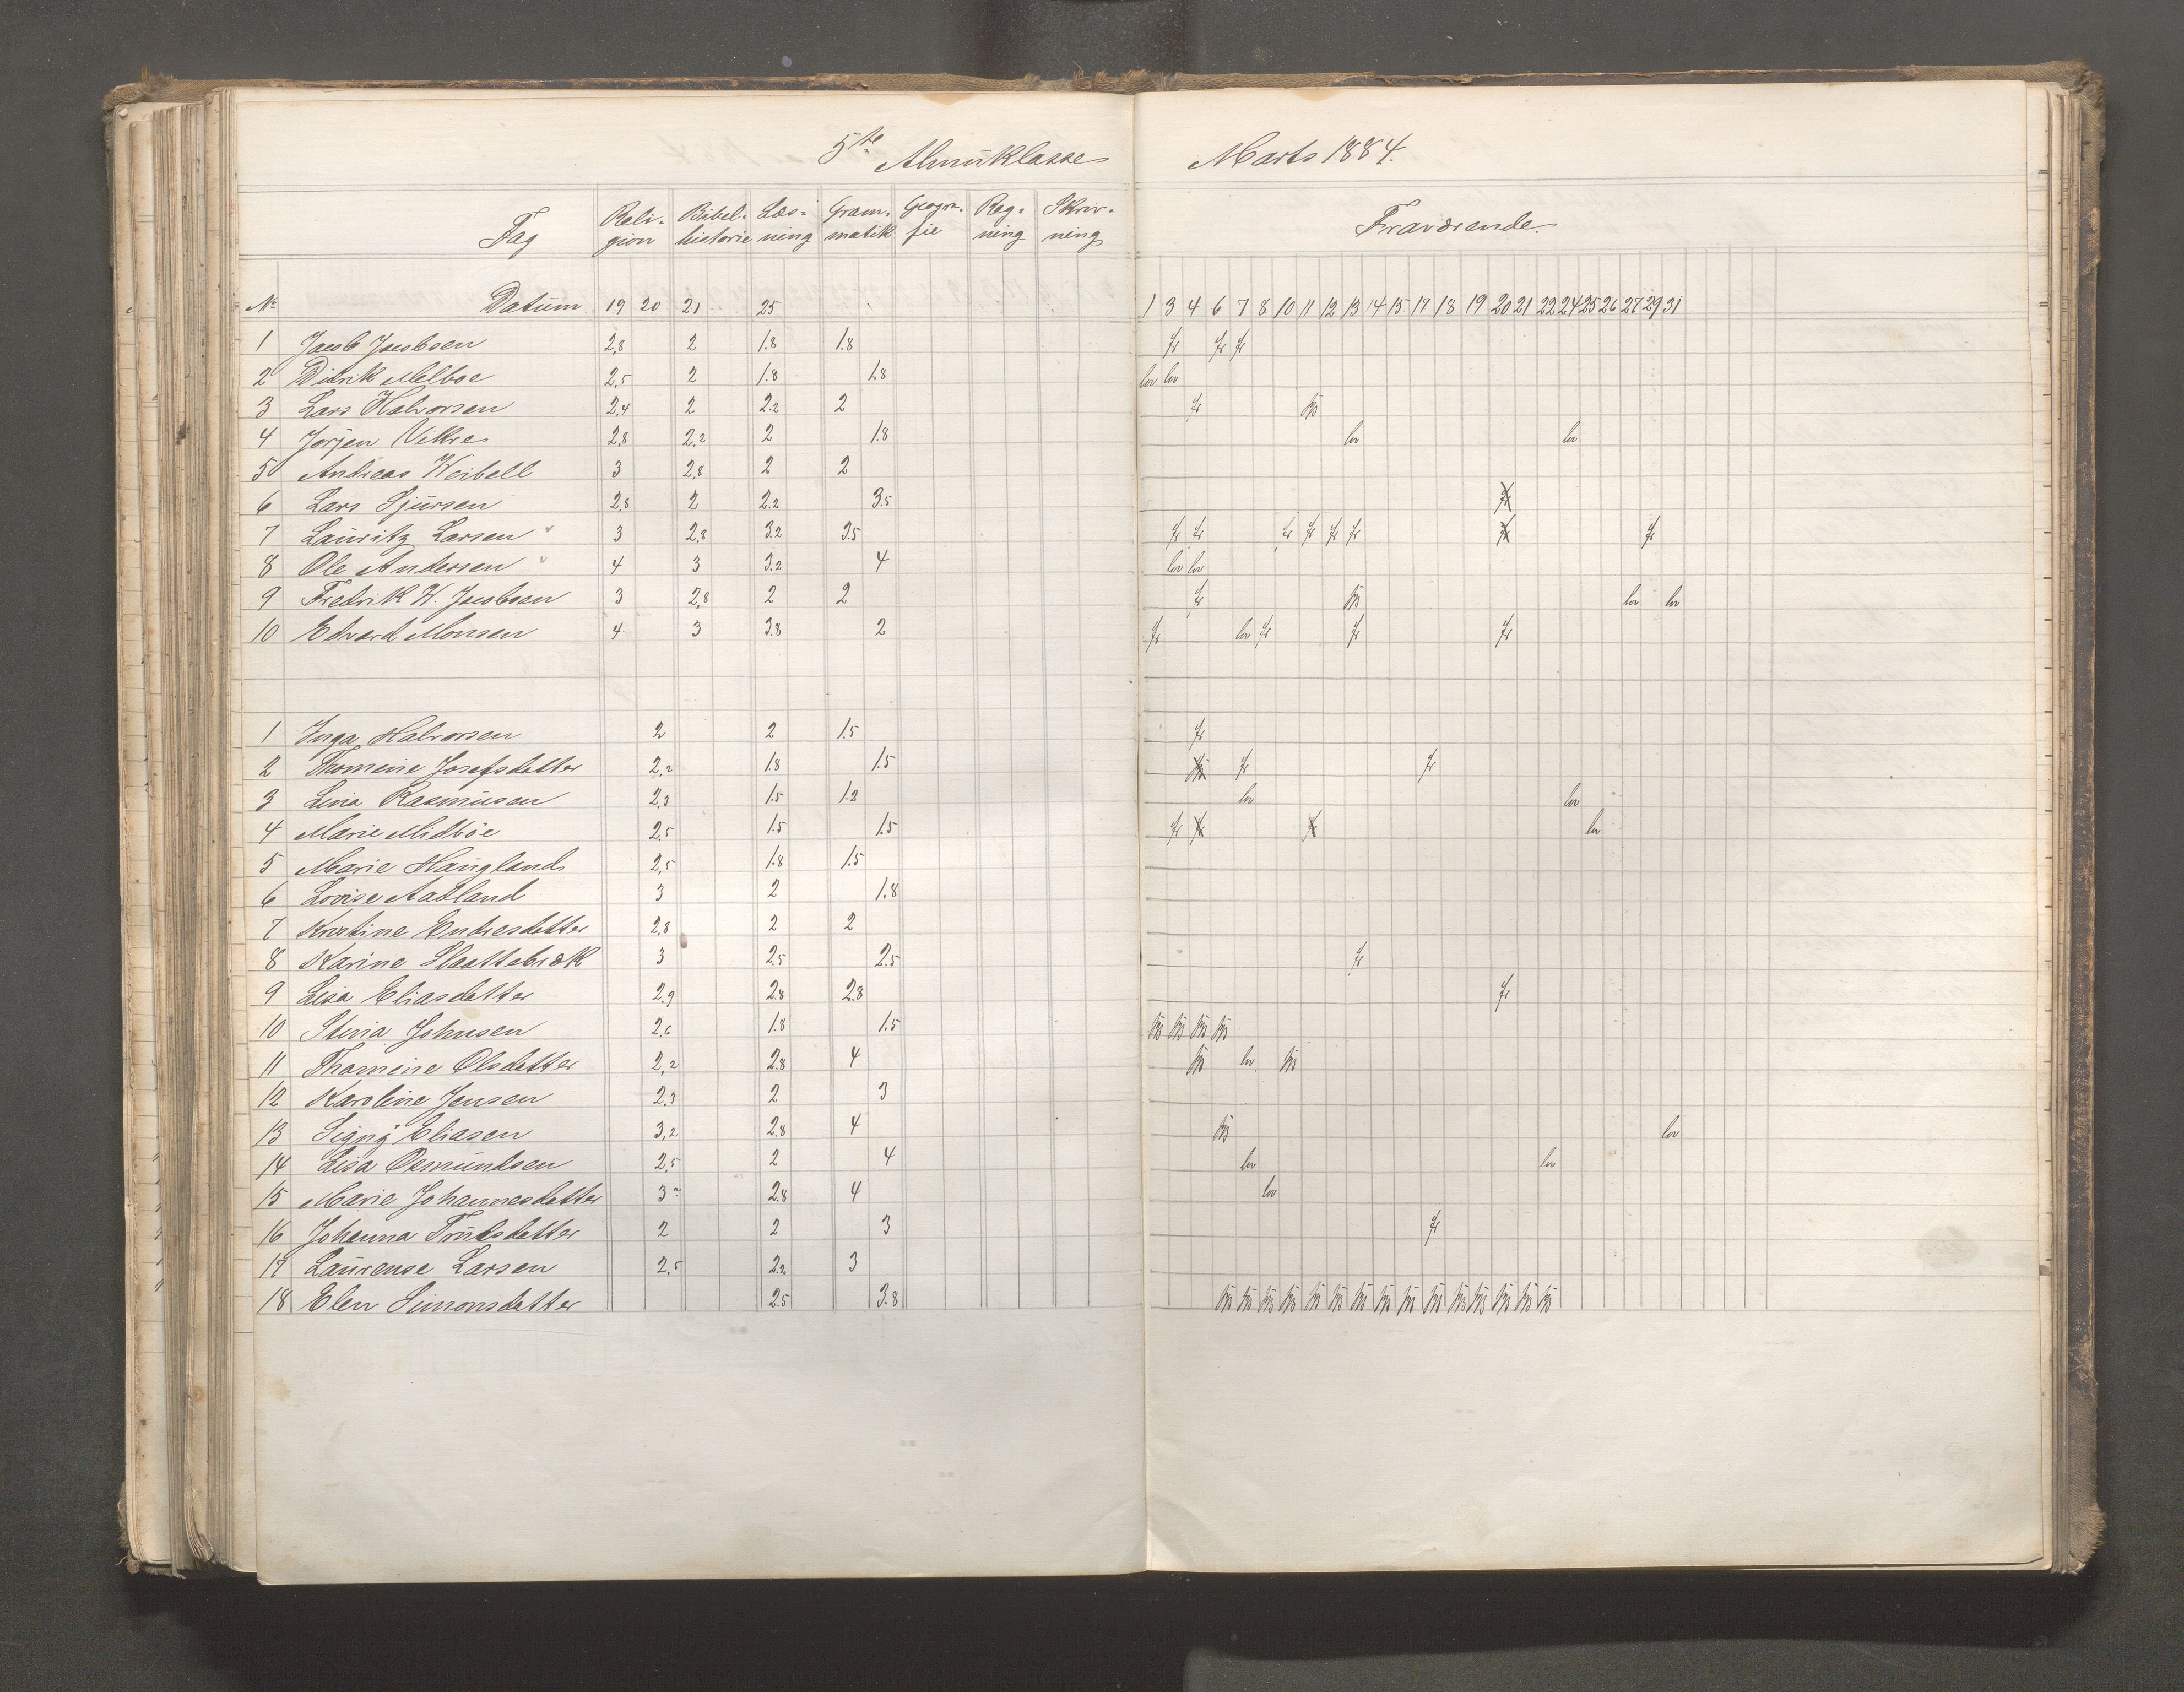 5te Almuklasse Marts 1884.
Fag Reli-gion Bibel-historie Læs-ning Gram-matik Geogra-fie Reg-ning Skriv-ning Fraværende
No Datum 19 20 21 25 1 3 4 6 7 8 10 11 12 13 14 15 17 18 19 20 21 22 24 25 26 27 29 31
1 Jacob Jacobsen 2,8 2 1.8 1.8 fr fr fr
2 Didrik Melboe 2,5 2 1.8 1.8 lov lov
3 Lars Halvorsen 2,4 2 2.2 2 fr
4 Jörjen Vikre 2,8 2,2 2 1.8 lov lov
5 Andreas Weibell 3 2,8 2 2
6 Lars Sjursen 2,8 2 2.2 3.5
7 Lauritz Larsen 3 2,8 3.2 3.5 fr fr fr fr fr fr fr
8 Ole Andersen 4 3 3.2 4 lov lov
9 Fredrik W. Jacobsen 3 2,8 2 2 fr lov lov
10 Edvard Monsen 4 3 3.8 2 fr lov fr fr fr
1 Inga Halvorsen 2 2 1.5 fr
2 Thomine Josefsdatter 2,2 1.8 1.5 fr fr
3 Lina Rasmusen 2,3 1.5 1.2 lov lov
4 Marie Midböe 2,5 1.5 1.5 fr lov
5 Marie Haugland 2,5 1.8 1.5
6 Lovise Aadland 3 2 1.8
7 Kristine Endresdatter 2,8 2 2
8 Karine Slaattebræk 3 2.5 2.5 fr
9 Lisa Eliasdatter 2,9 2.8 2.8 fr
10 Stina Johnsen 2,6 1.8 1.5
11 Thomine Olsdatter 2,2 2.8 4 lov
12 Karoline Jensen 2,3 2 3
13 Signÿ Eliasen 3,2 2.8 4 lov
14 Lisa Osmundsen 2,5 2 4 lov lov
15 Marie Johannesdatter 3 2.8 4 lov
16 Johanna Trulsdatter 2 2 3 fr
17 Laurense Larsen 2,5 2.2 3
18 Elen Simonsdatter 2.5 3.8